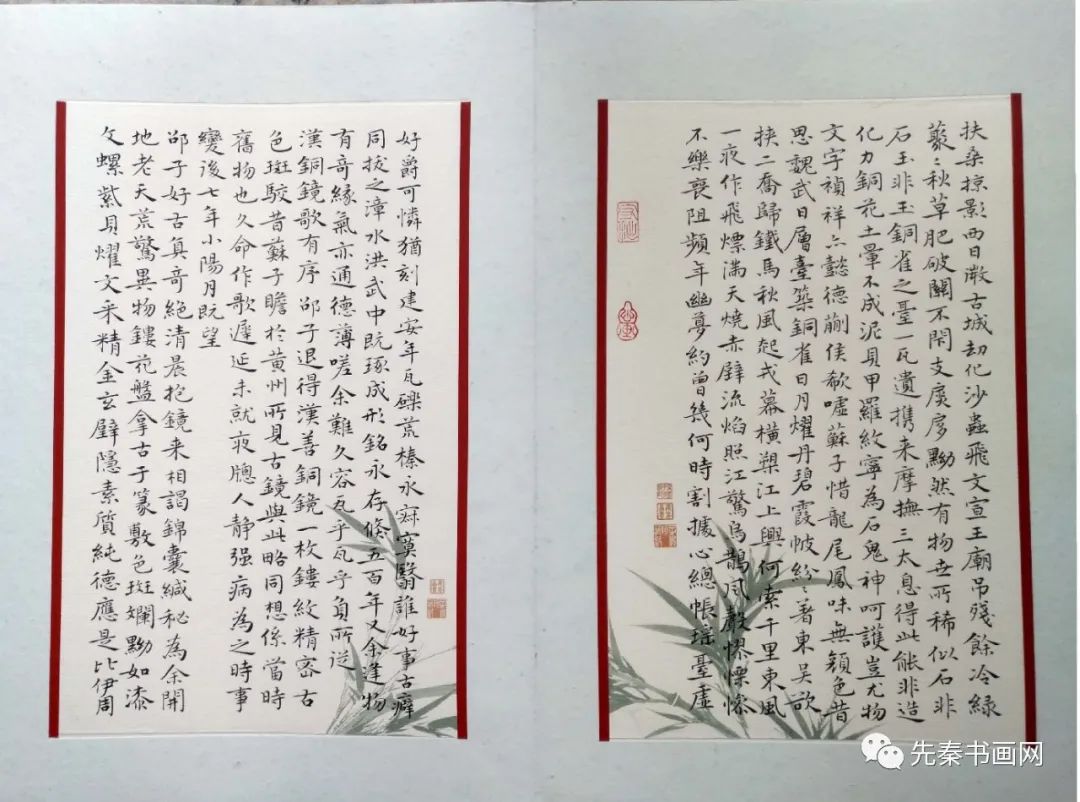 扶桑掠影西日微古城劫化沙蟲飛文宣王廟吊殘餘冷綠
藂〻秋草肥破關不閑支廢户黝然有物世所稀似石非
石玉非玉銅雀之臺一瓦遺攜来摩撫三太息得此能非造
化力銅花土暈不成泥貝甲羅紋寧為石鬼神呵護豈尤物
文字禎祥亦懿德蒯侯欷嘘蘇子惜龍尾鳳味無顔色昔
思魏武日層臺築銅雀日月耀丹碧霞帔紛〻著東吴欲
挟二喬歸鐵馬秋風起戎幕横槊江上興何索千里東風
一夜作飛熛滿天燒赤壁流焰照江驚烏鵲風聲慘慄
不樂喪阻頻年幽夢約曾幾何時割據心總帳瑶臺虚
好爵可憐猶刻建安年瓦礫荒榛永寂寞翳誰好事古癖
同拔之漳水洪武中既琢成形銘永存倏五百年又余逢物
有奇緣氣亦通德薄嗟余難久容瓦乎瓦乎負所從
漢銅鏡歌有序 邵子退得漢善銅鏡一枚鏤紋精密古
色斑駮昔蘇子瞻於黄州所見古鏡與此略同想係當時
舊物也久命作歌遲延未就夜牎人静强病為之時事
變後七年小陽月既望
邵子好古真奇絶清晨抱鏡来相謁錦囊緘秘為余開
地老天荒驚異物鏤花盤拿古于篆敷色斑斕黝如漆
文螺紫貝燿文采精金玄璧隱素質純德應是比伊周
先秦书画网